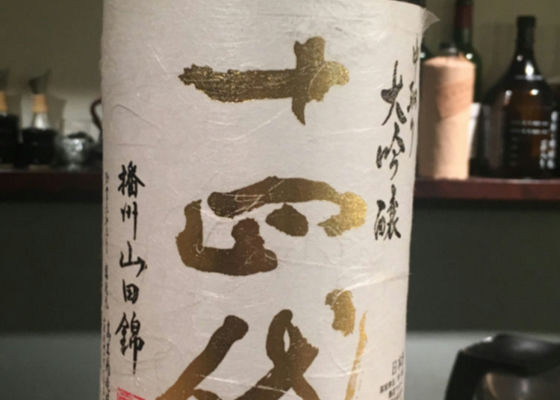 中取り大吟醸
十四代
播州山田錦